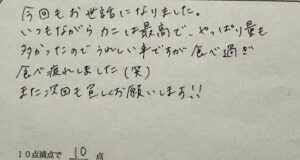 今回もお世話になりました。
いつもながら カニは最高で、やっぱり量も
多かったので うれしい事ですが 食べ過ぎ
食べ疲れしました(笑)
また次回も宜しくお願いします!!
10点満点で 10 点